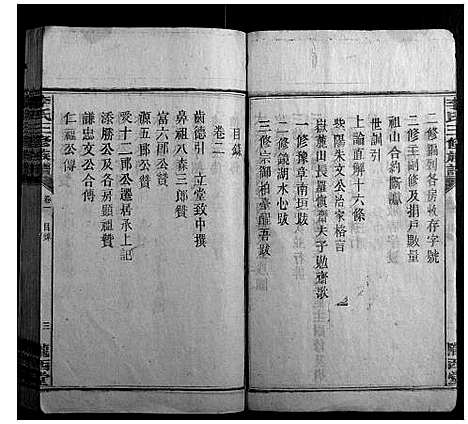 二修編列各房收存字號
二修主副修及捐戶數量
祖山合約斷讞
世訓引
上諭直解十六條
紫陽朱文公治家格言
嶽麓山長羅慎齋夫子勉齋歌
一修豫章南垣跋
二修鏡湖水心跋
三修宗御柏臺醒吾跋
目錄
卷二
齒德引 立堂致中撰
鼻祖八森三郎贊
富六郎公贊
源五郎公贊
受十二郎公遷居承上記
添勝公及各房顯祖贊
謙忠文公合傳
仁福公傳
李氏三修族譜
卷一 目錄
三
隴西堂